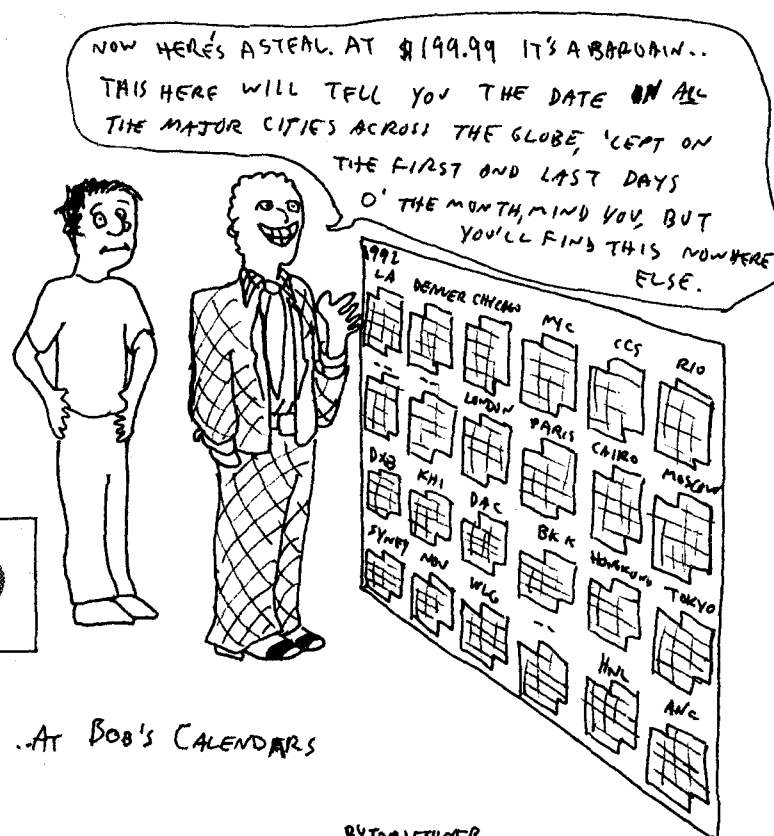 NOW HERE'S A STEAL. AT $199.99 IT'S A BARGAIN..
THIS HERE WILL TELL YOU THE DATE IN ALL
THE MAJOR CITIES ACROSS THE GLOBE, 'CEPT ON
THE FIRST AND LAST DAYS
O' THE MONTH, MIND YOU, BUT
YOU'LL FIND THIS NOWHERE
ELSE.
1992
LA DENVER CHICAGO NYC CCS RIO
-- -- LONDON PARIS CAIRO MOSCOW
DXB KHI DAC BKK HONGKONG TOKYO
SYNEY NOU WLG -- HNL ANC
..AT BOB'S CALENDARS